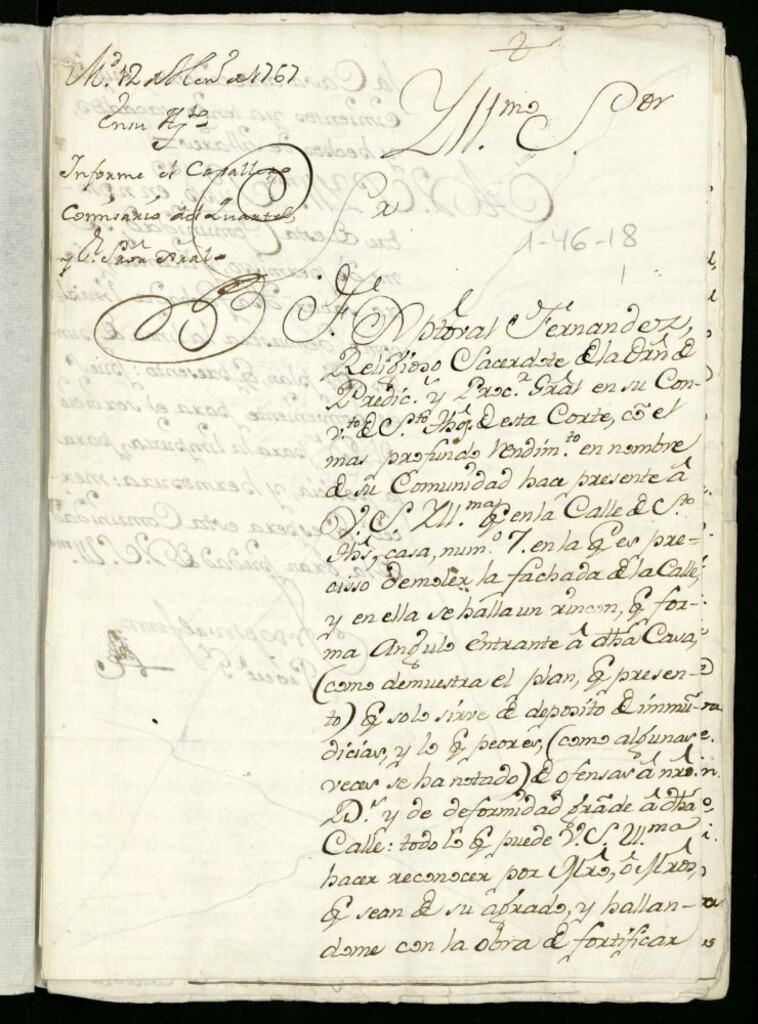 2
M.d 12 de Hen.o de 1767
Yll.mo S.or
En su Ay.to
Informe el Cavallero
Comisario del Quartel,
y el S.or Proc.or Gral
1-46-18
1
Fr. Pastoral Fernandez,
Religioso Sacerdote de la Orñ de
Predic.s y Proc.r Grãl en su Con-
v.to de S.to Thõs. de esta Corte, cõ el
mas profundo Rendim.to en nombre
de su Comunidad hace presente â
V.S. Yll.ma q̃ en la Calle de S.to
Thõs, casa, num.o 7. en la q̃ es pre-
cisso demoler la fachada de la Calle,
y en ella se halla un rincon, q̃ for-
ma Angulo entrante â dhã Casa,
(como demuestra el plan, q̃ presen-
to) q̃ solo sirve de deposito de immũ-
dicias, y lo q̃ peor es, (como algunas
veces se ha notado) de ofensas â nrõ
D.s y de deformidad grãde â dhã
Calle: todo lo q̃ puede V.S. Yll.ma
hacer reconocer por Mrõ, ô Mrõs,
q̃ sean de su agrado, y hallan-
dome con la obra de fortificar